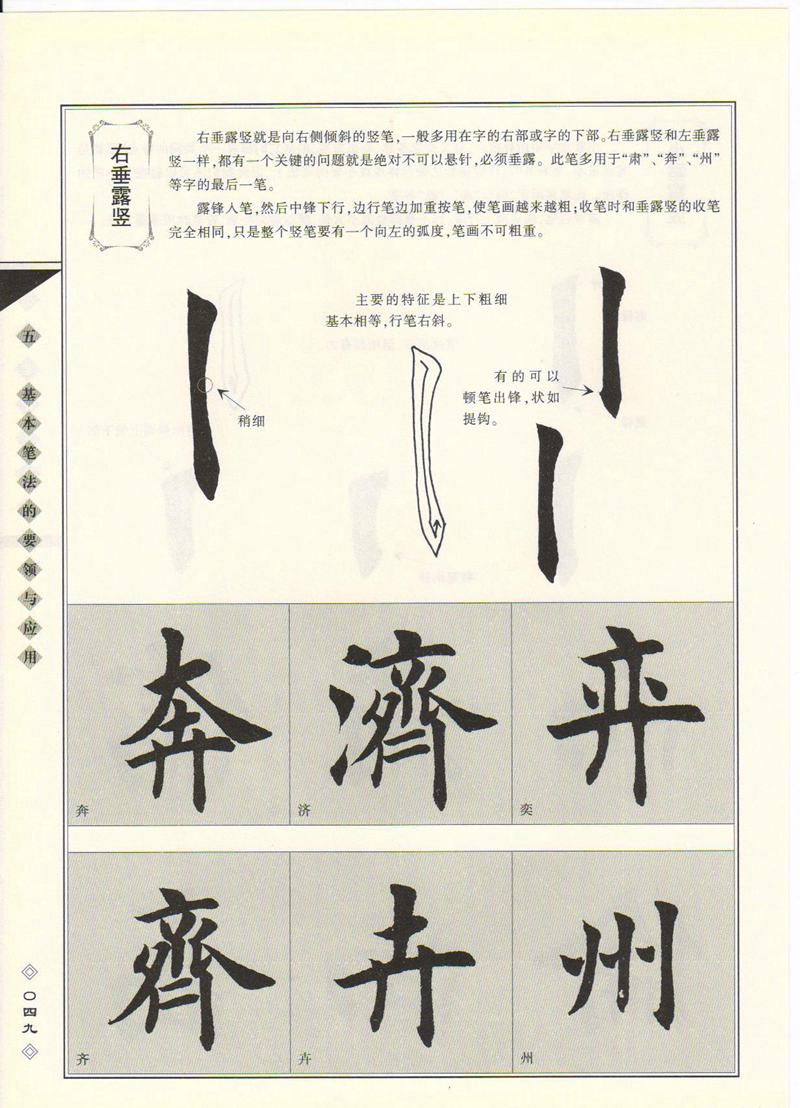 右垂露竖
右垂露竖就是向右侧倾斜的竖笔,一般多用在字的右部或字的下部。右垂露竖和左垂露
竖一样,都有一个关键的问题就是绝对不可以悬针,必须垂露。此笔多用于“肃”、“奔”、“州”
等字的最后一笔。
露锋入笔,然后中锋下行,边行笔边加重按笔,使笔画越来越粗;收笔时和垂露竖的收笔
完全相同,只是整个竖笔要有一个向左的弧度,笔画不可粗重。
主要的特征是上下粗细
基本相等,行笔右斜。
稍细
有的可以
顿笔出锋,状如
提钩。
五 基本笔法的要领与应用
奔 濟 弈
奔 济 奕
齊 卉 州
齐 卉 州
〇四九